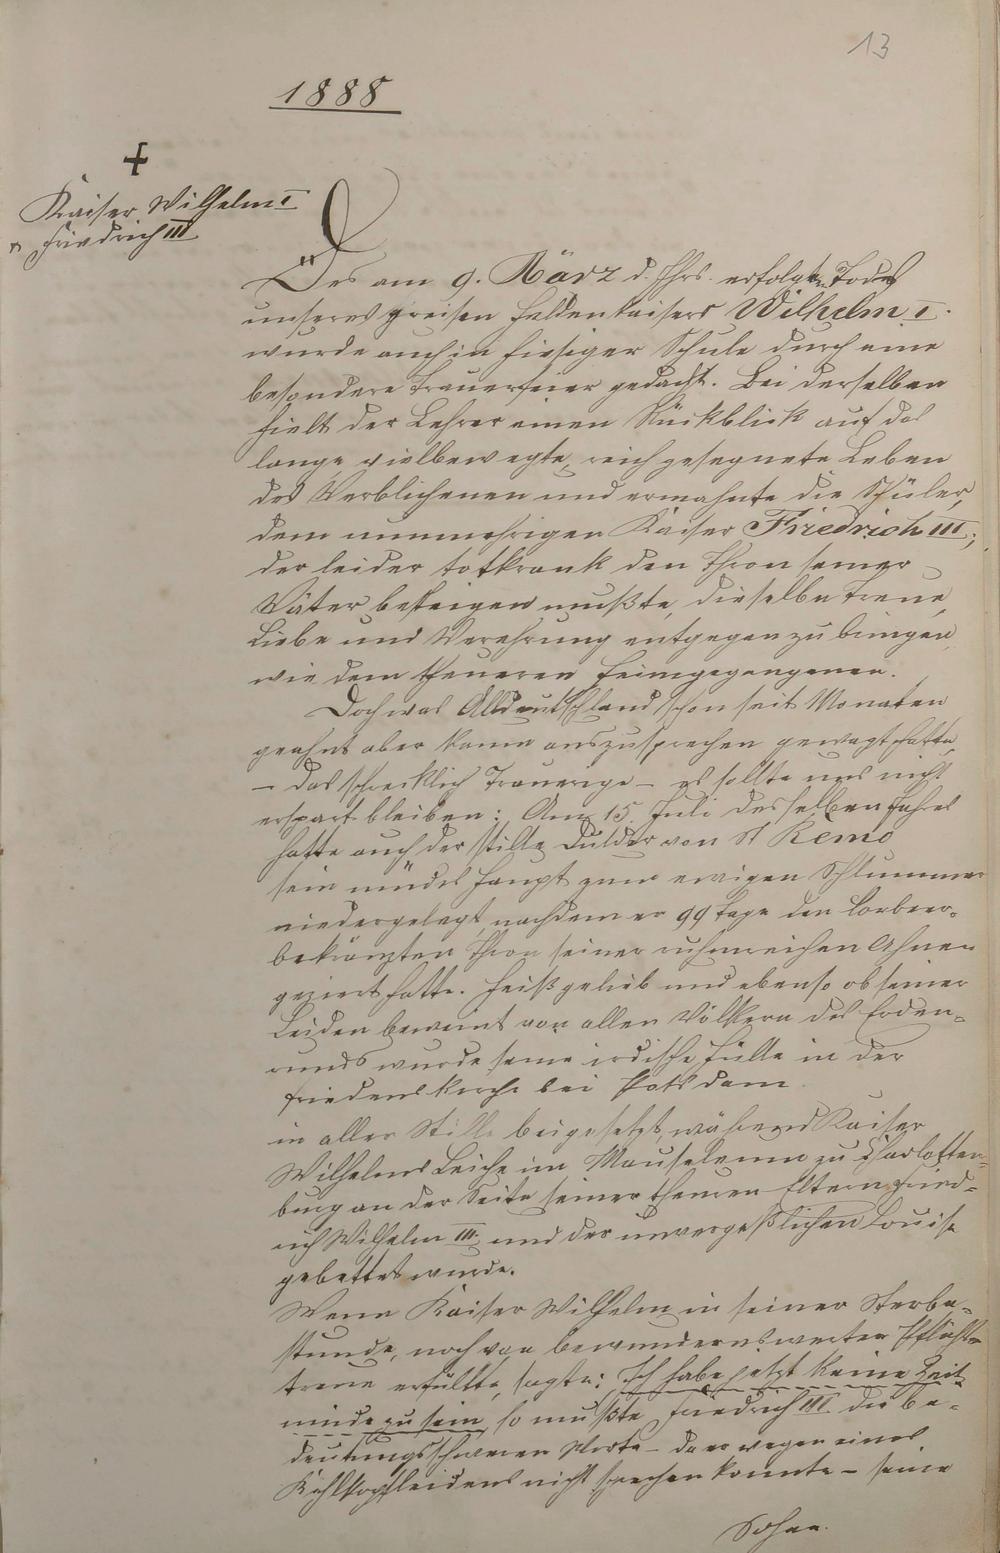 13
1888
+
Kaiser Wilhelm I
u. Friedrich III
Des am 9. März d. Jhrs. erfolgten Todes
unseres greisen Heldenkaisers Wilhelm I.
wurde auch in hiesiger Schule durch eine
besondere Trauerfeier gedacht. Bei derselben
hielt der Lehrer einen Rückblick auf das
lange, vielbewegte, reich gesegnete Leben
des Verblichenen und ermahnte die Schüler,
dem nunmehrigen Kaiser Friedrich III,
der leider totkrank den Thron seiner
Väter besteigen mußte, dieselbe Treue,
Liebe und Verehrung entgegen zu bringen,
wie dem theueren Heimgegangenen.
Doch was Alldeutschland schon seit Monaten
geahnt aber kaum auszusprechen gewagt hatte,
– das schrecklich Traurige – es sollte uns nicht
erspart bleiben: Am 15. Juli desselben Jahres
hatte auch der stille Dulder von St Remo
sein müdes Haupt zum ewigen Schlummer
niedergelegt, nachdem er 99 Tage den lorbeer-
bekränzten Thron seiner ruhmreichen Ahnen
geziert hatte. Heiß gelieb und ebenso ob seiner
Leiden beweint von allen Völkern des Erden-
runds wurde seine irdische Hülle in der
Friedenskirche bei Potsdam
in aller Stille beigesetzt, während Kaiser
Wilhelms Leiche im Mausoleum zu Charlotten-
burg an der Seite seiner theuren Eltern Fried-
rich Wilhelm III. und der unvergeßlichen Louise
gebettet wurde.
Wenn Kaiser Wilhelm in seiner Sterbe-
stunde, noch von bewundernswerter Pflicht-
treue erfüllte, sagte: Ich habe jetzt keine Zeit
müde zu sein, so mußte Friedrich III. die be-
deutungsschweren Worte – da er wegen eines
Kehlkopfleidens nicht sprechen konnte – seine
Sohne